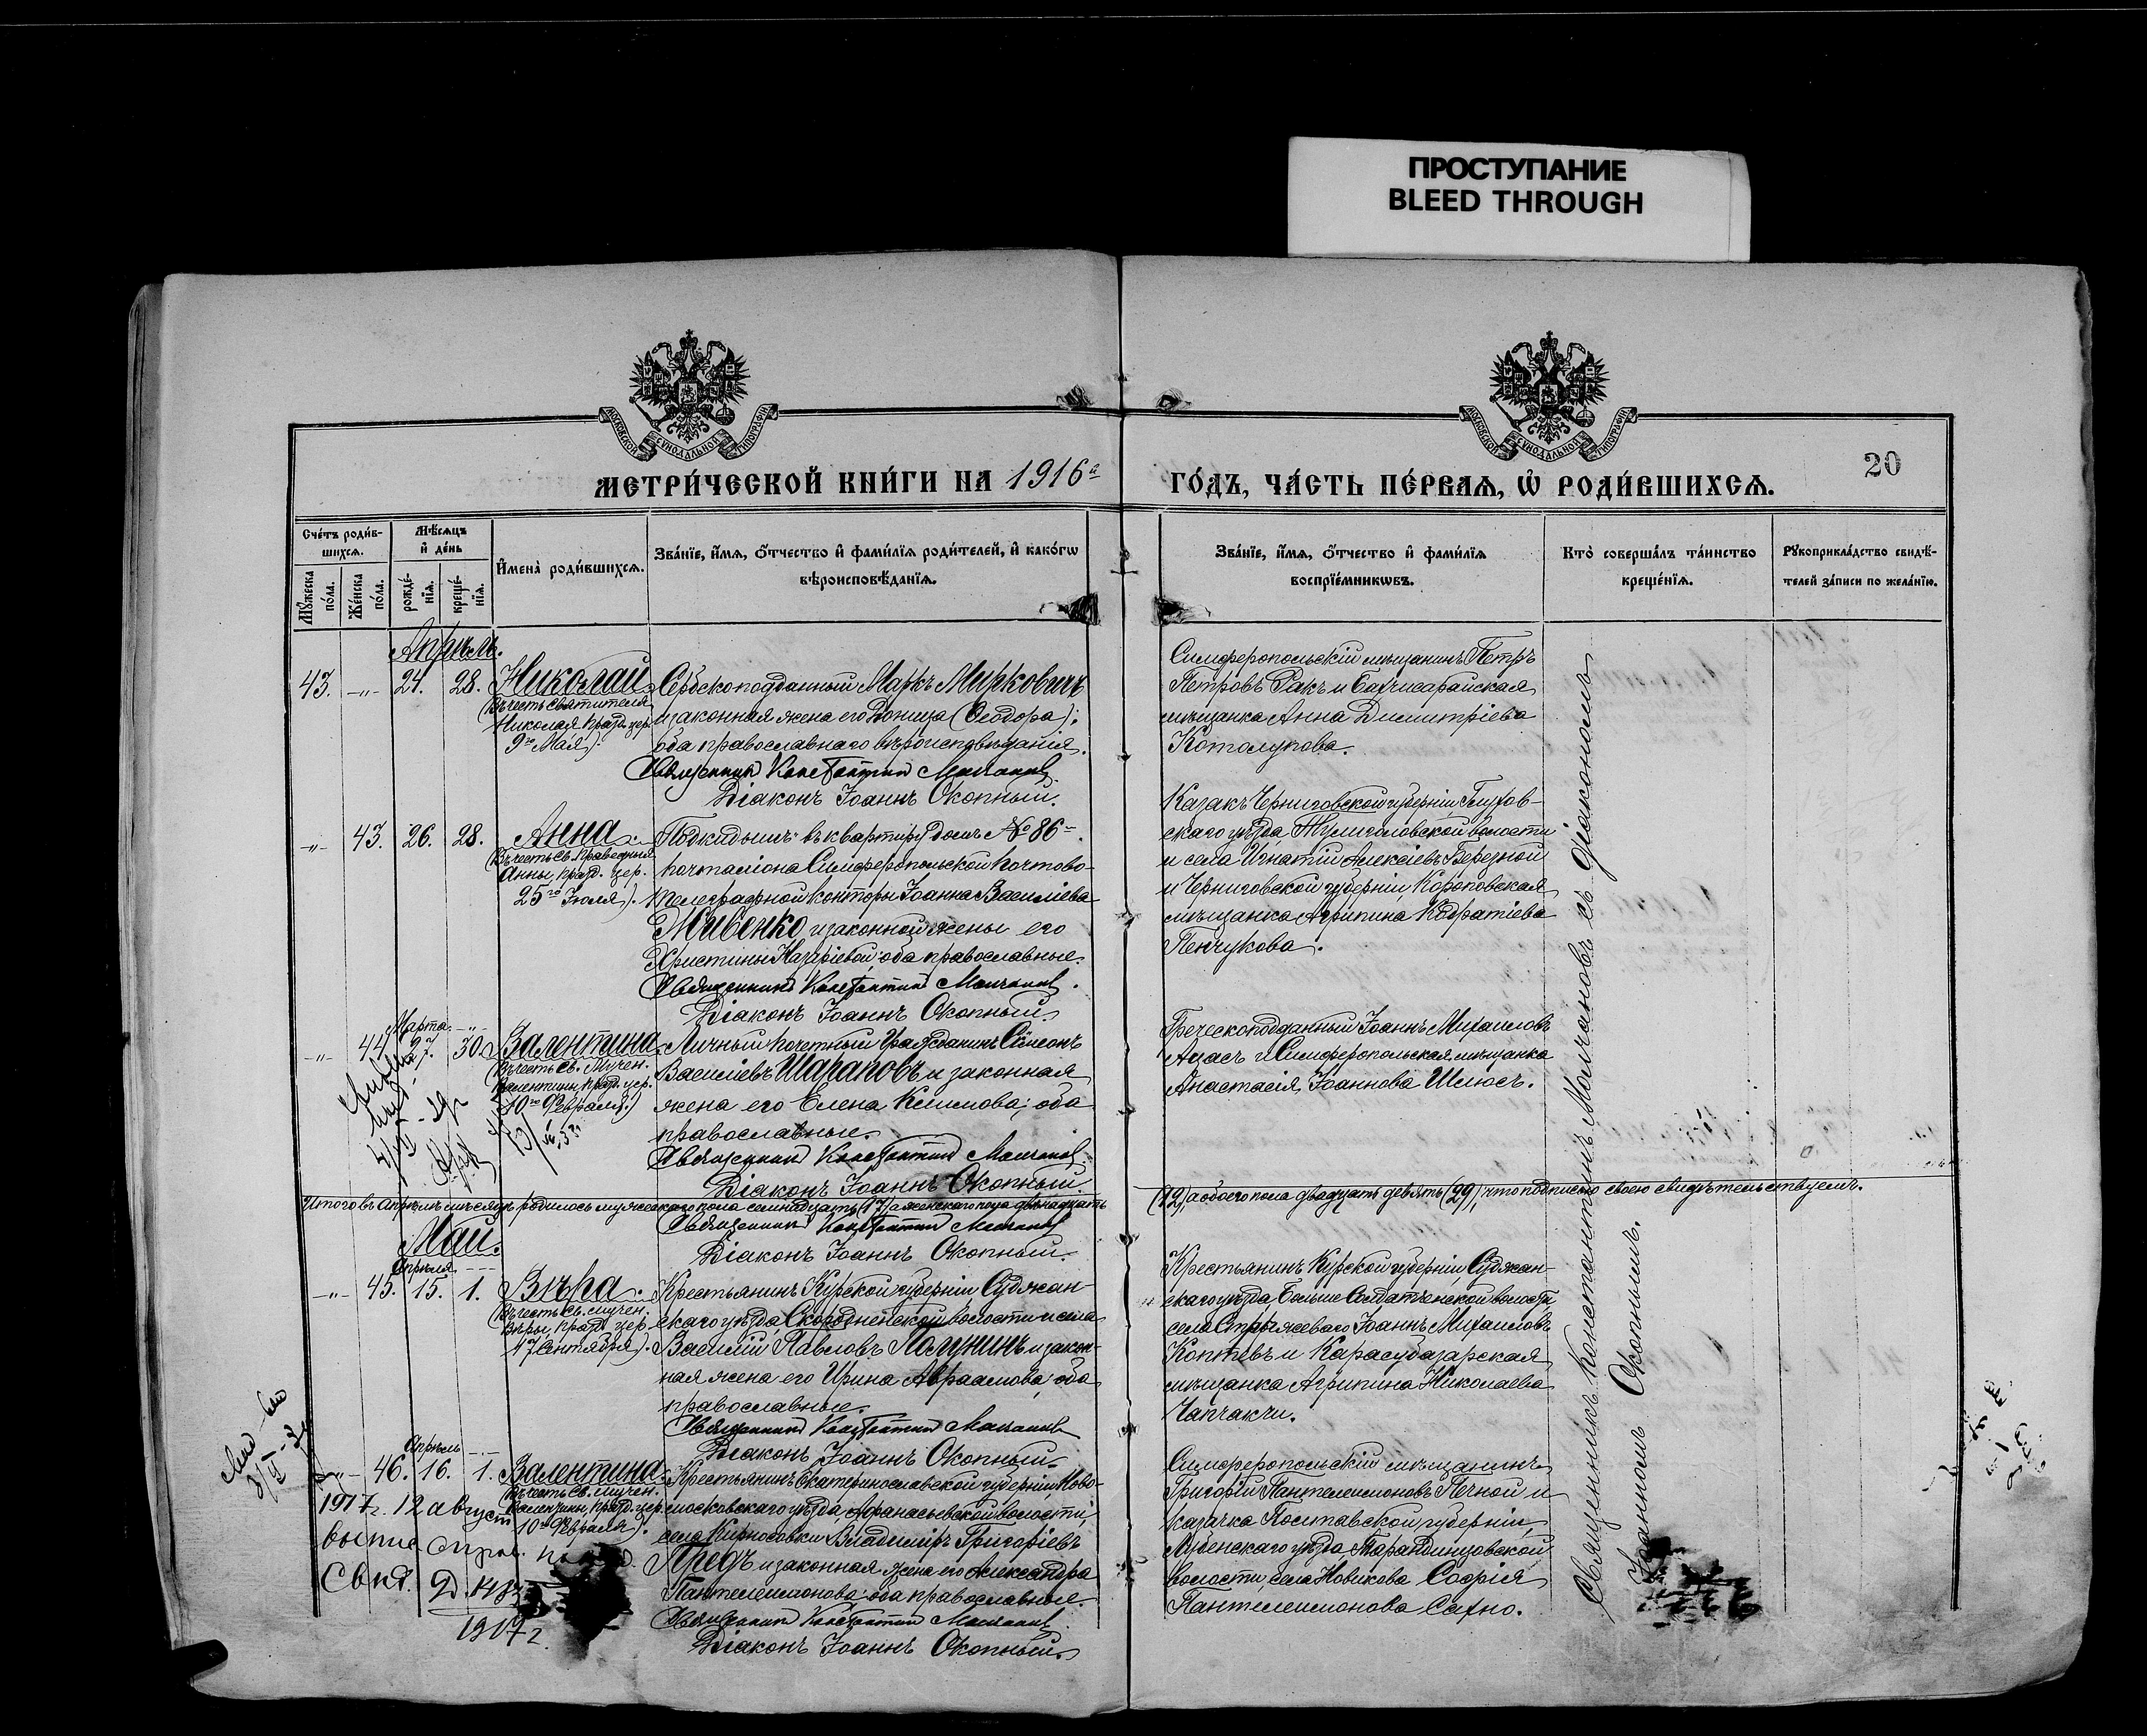 ПРОСТУПАНИЕ
BLEED THROUGH
МОСКОВСКОЙ СУНОДАЛЬНОЙ ТИПОГРАФІИ
МОСКОВСКОЙ СУНОДАЛЬНОЙ ТИПОГРАФІИ
МЕТРИ́ЧЕСКОЙ КНИ́ГИ НА 1916й ГО́ДЪ, ЧА́СТЬ ПЕ́РВАЯ, Ѡ РОДИ́ВШИХСЯ.
20
Сче́тъ роди́в-
шихся.
Мѣ́сяцъ
и̑ де́нь
Мꙋ́жеска по́ла.
Же́нска по́ла.
рожде́-нїя.
креще́-нїя.
И̑мена̀ роди́вшихся.
Зва́нїе, и́мя, ѻ́тчество и̑ фами́лїя роди́телей, и̑ како́гѡ
вѣроисповѣ́данїя.
Зва́нїе, и́мя, ѻ́тчество и̑ фами́лїя
воспрїе́мникѡвъ.
Кто̀ соверша́лъ та́инство
креще́нїя.
Рꙋкоприкла́дство свидѣ́-
телей за́писи по жела́нїю.
Апрѣль.
43. -„- 24. 28. Николай
(Въ честь Святителя
Николая празд. цер.
9го Мая).
Сербскоподданный Маркъ Мирковичъ
и законная жена его Доница (Ѳеодора);
оба православнаго вѣроисповѣданія.
Священникъ Константинъ Молчановъ.
Діаконъ Іоаннъ Окопный.
Симферопольскій мѣщанинъ Петръ
Петровъ Ракъ и Бахчисарайская
мѣщанка Анна Димитріева
Котолупова.
-„- 43. 26. 28. Анна.
(Въ честь Св. Праведныя
Анны, празд. цер.
25го Іюля).
Подкидышъ въ квартиру домъ № 86
почталіона Симферопольской почтово-
телеграфной конторы Іоанна Василіева
Живенко и законной жены его
Христины Назаріевой; оба православные.
Священникъ Константинъ Молчановъ.
Діаконъ Іоаннъ Окопный.
Казакъ Черниговской губерніи, Глухов-
скаго уѣзда, Тулиголовской волости
и села Игнатій Алексіевъ Березной
и Черниговской губерніи, Короповская
мѣщанка Агрипина Кодратіева
Пенчукова.
Марта -„-
-„- 44. 27. 30. Валентина.
(Въ честь Св. Мучен.
Валентины, празд. цер.
10го Февраля.)
Личный почетный гражданинъ Сѵмеонъ
Василіевъ Шараповъ и законная
жена его Елена Климова; оба
православные.
Священникъ Константинъ Молчановъ.
Діаконъ Іоаннъ Окопный.
Греческоподданный Іоаннъ Михаиловъ
Ацасъ и Симферопольская мѣщанка
Анастасія Іоаннова Шлюсъ.
Итого въ Апрѣлѣ мѣсяцѣ родилось мужескаго пола семнадцать (17), а женскаго пола двѣнадцать
(12), а обоего пола двадцать девять (29), что подписью своею свидѣтельствуемъ.
Священникъ Константинъ Молчановъ
Діаконъ Іоаннъ Окопный.
Май.
Апрѣля
-„- 45. 15. 1. Вѣра.
(Въ честь Св. мучен.
Вѣры, празд. цер.
17 Сентября).
Крестьянинъ Курской губерніи, Суджан-
скаго уѣзда, Скородненской волости и села
Василій Павловъ Полунинъ и закон-
ная жена его Ирина Авраамова; оба
православные.
Священникъ Константинъ Молчановъ
Діаконъ Іоаннъ Окопный.
Крестьянинъ Курской губерніи, Суджан-
скаго уѣзда, Больше Солдатченской волости
села Стрыжеваго Іоаннъ Михаиловъ
Коптевъ и Карасубазарская
мѣщанка Агрипина Николаева
Чапчакчи.
Апрѣль
-„- 46. 16. 1. Валентина.
(Въ честь Св. мучен.
Валентины, празд. цер.
10го Февраля).
Крестьянинъ Екатеринославской губерніи, Ново-
московскаго уѣзда, Афанасьевской волости,
села Кирносовки Владиміръ Григоріевъ
Предъ и законная жена его Александра
Пантелеимонова; оба православные.
Священникъ Константинъ Молчановъ
Діаконъ Іоаннъ Окопный.
Симферопольскій мѣщанинъ
Григорій Пантелеимоновъ Печной и
казачка Полтавской губерніи,
Лубенскаго уѣзда, Тарандинцовской
волости, села Новикова Софія
Пантелеимонова Сахно.
1917г. 12 август
1917 г.
Священникъ Константинъ Молчановъ съ діакономъ
Іоанномъ Окопнымъ.